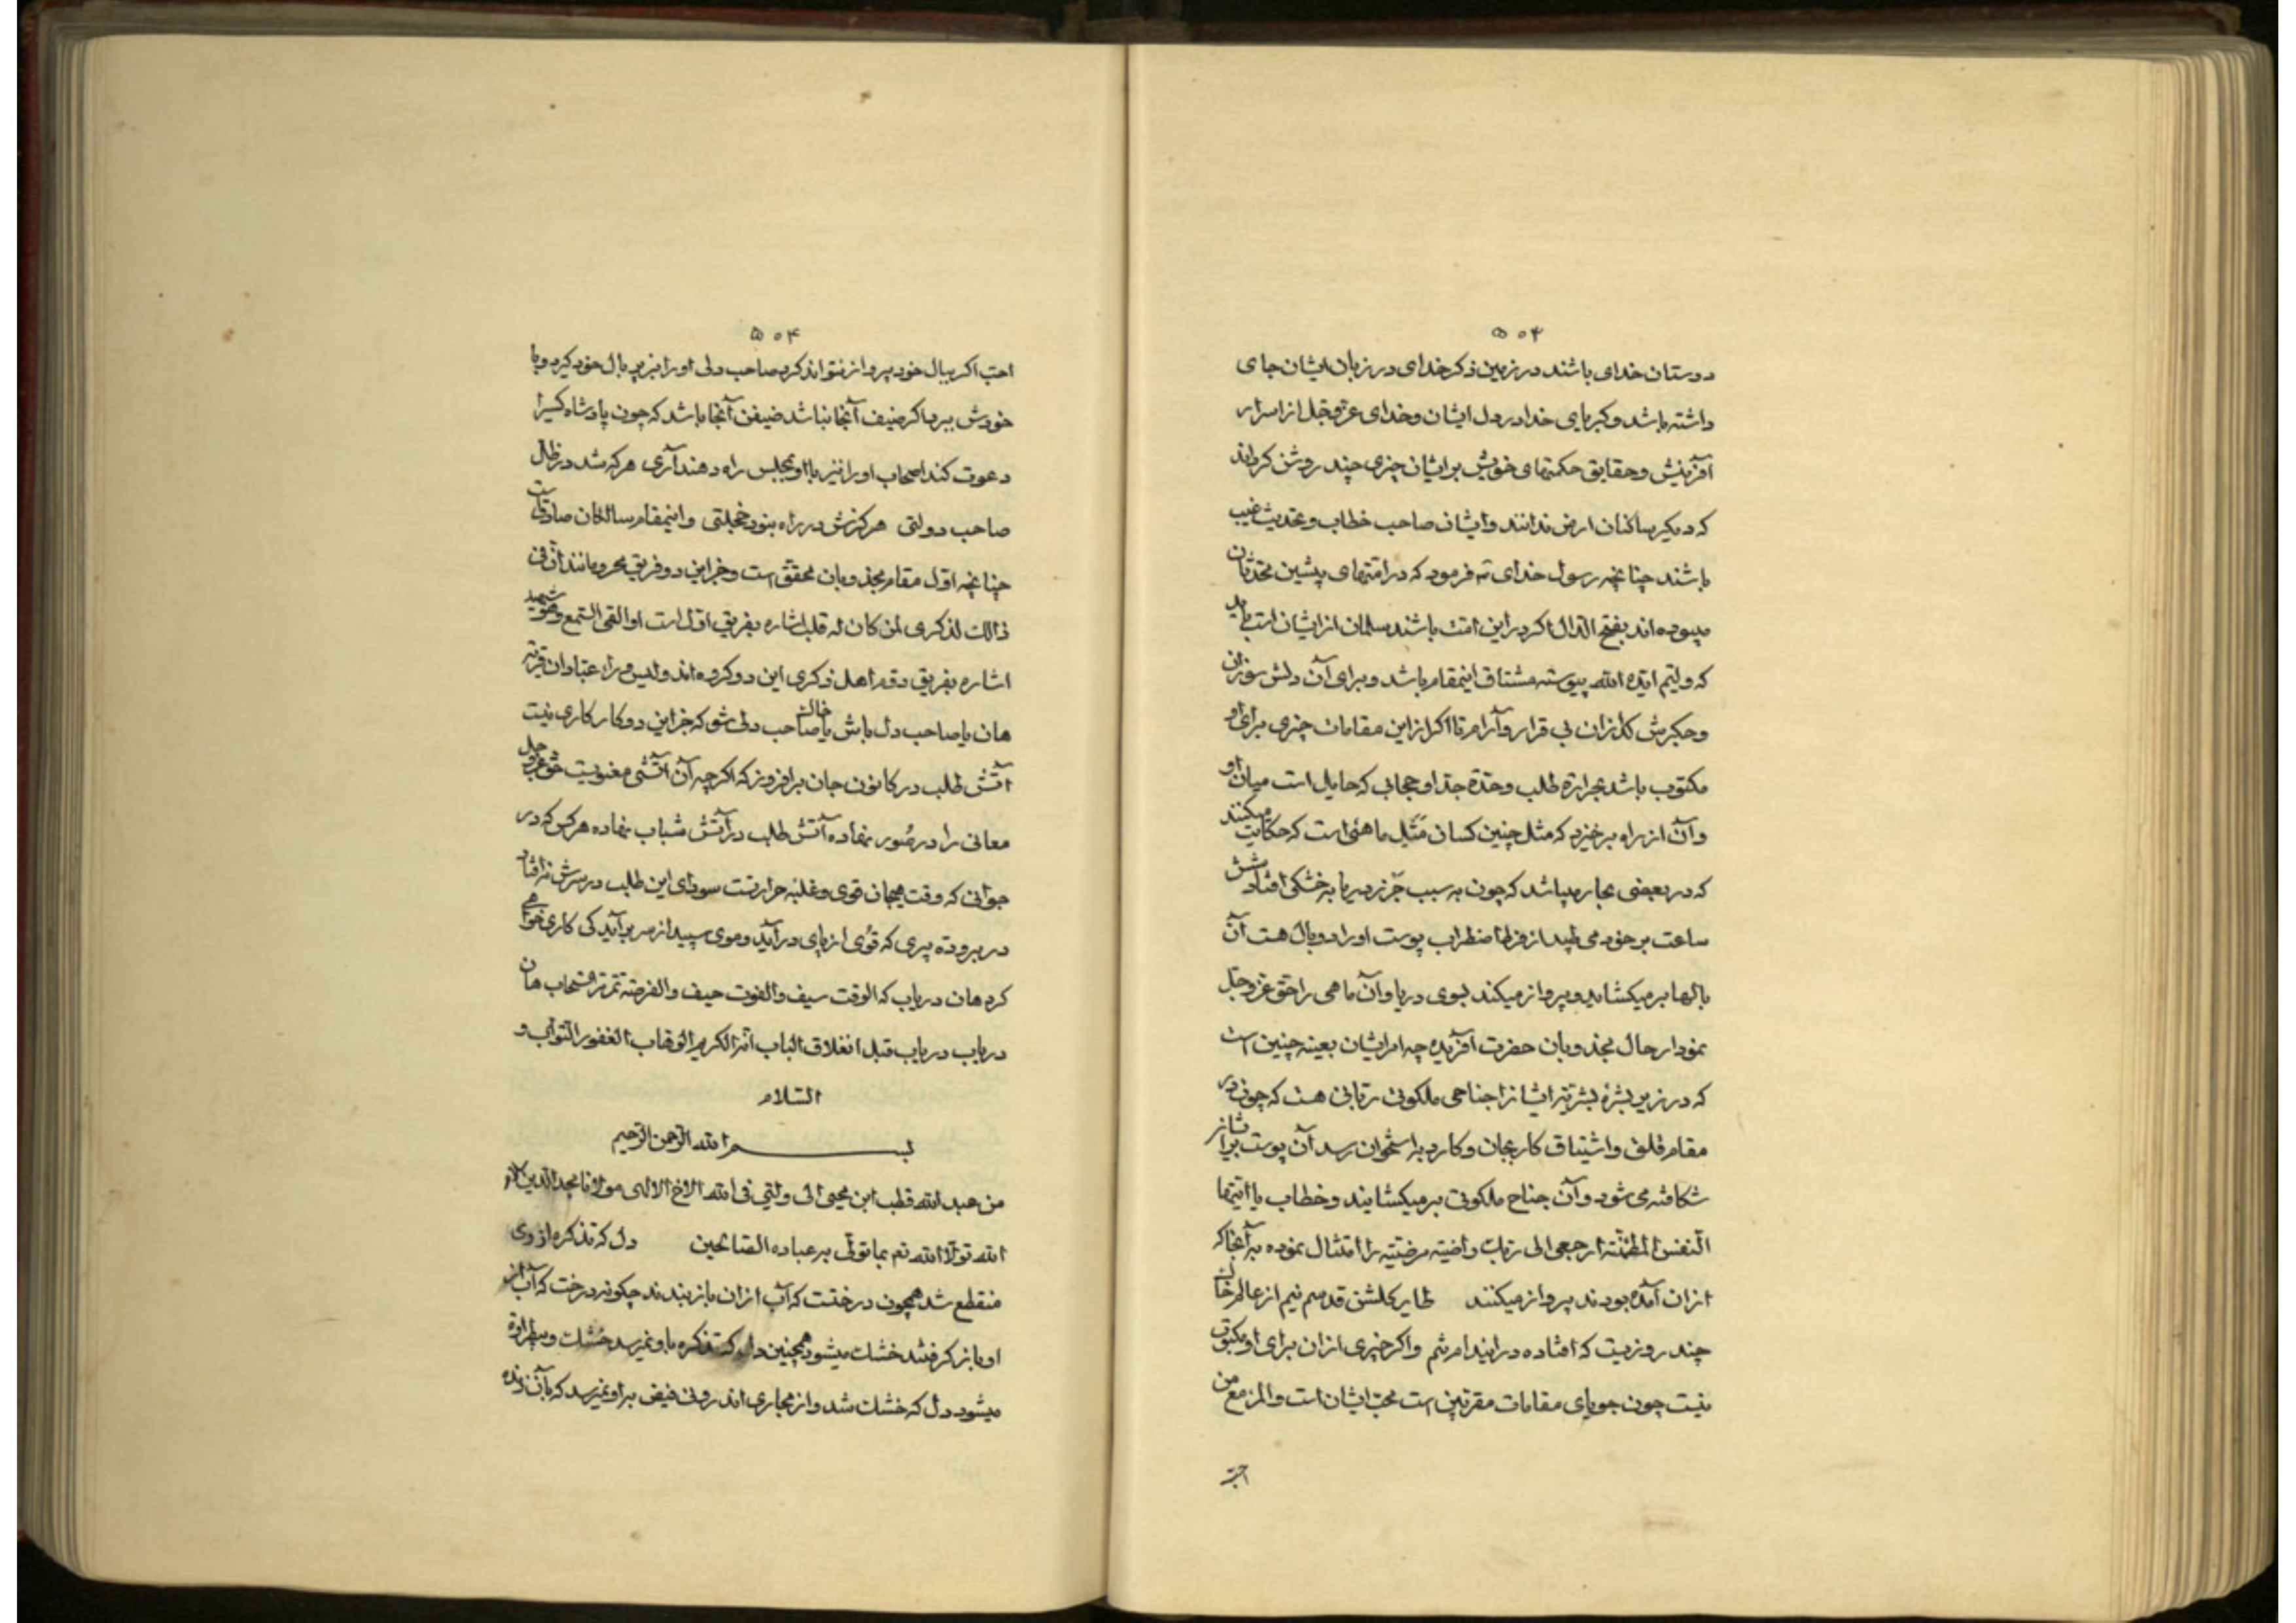 ۵۰۴
دوستان خدای باشند در زمین ذکر خدای در زبان ایشان جای
داشته باشد و کبریای خدا در دل ایشان و خدای عز و جل از اسرار
آفرینش و حقایق حکمتهای خویش بر ایشان چیزی چند روشن کرداند
که دیکر ساکنان ارض ندانند و ایشان صاحب خطاب و تحدیث غیب
باشند چنانچه رسول خدای فرمود که در امتهای پیشین محدثان
میبوده اند بفتح الدال اکر در این امت باشند سلمان از ایشان است باید
که ولیتم ایده الله پیوسته مشتاق اینمقام باشد و برای آن دلش سوزان
و جکرش کدازان بی قرار و آرام تا اکر از این مقامات چیزی برای او
مکتوب باشد بحرارة طلب و حدة جد او حجابی که حایل است میان او
و آن از راه برخیزد که مثل چنین کسان مَثَل ماهئی است که حکایت میکنند
که در بعضی بحار میباشد که چون به سبب جزر دریا به خشکی افتاد شش
ساعت بر خود می طپید از فرط اضطراب پوست او را دو بال هست آن
بالها بر میکشاید و پرواز میکند بسوی دریا و آن ماهی را حق عز و جل
نمودار حال مجذوبان حضرت آفریده چه امر ایشان بعینه چنین است
که در زیر بشرهٔ بشریه ایشانرا جناحی ملکوتی ربانی هست که چون در
مقام قلق و اشتیاق کار بجان و کارد به استخوان رسد آن پوست بر ایشان
شکافته می شود و آن جناح ملکوتی بر میکشایند و خطاب یا ایتها
النفس المطمئنة ارجعی الی ربک راضیة مرضیة را امتثال نموده به آنجا که
از ان آمده بودند پرواز میکنند طایر کلشن قدسم نیم از عالم خاک
چند روزیست که افتاده در ایندامیم و اکر چیزی از ان برای او مکتوب
نیست چون جویای مقامات مقربین است محب ایشان است و المرء مع من
احب
۵۰۴
احب اکر ببال خود پرواز نتواند کرد صاحب دلی او را بزیر بال خود کیرد و با
خودش ببرد اکر ضیف آنجا نباشد ضیفن آنجا باشد که چون پادشاه کسیرا
دعوت کند اصحاب او را نیز با او بمجلس راه دهند آری هر که شد در ظلّ
صاحب دولتی هرکزش در راه نبود خجلتی و اینمقام سالکان صادقست
چنانچه اول مقام مجذوبان محقق است و جز این دو فریق محرومانند ان فی
ذالک لذکری لمن کان له قلب اشاره بفریق اول است او القی السمع و هو شهید
اشاره بفریق دوم اهل ذکری این دو کروه اند و لیس وراء عبادان قریة
هان یا صاحب دل باش یا خاک صاحب دلی شو که جز این دو کار کاری نیست
آتش طلب در کانون جان برافروز که اکرچه آن آتشی معنویست حق عز و جل
معانی را در صُوَر نهاده آتش طلب در آتش شباب نهاده هر کس که در
جوانی که وقت هیجان قوی و غلبه حرارتست سودای این طلب در سرش نه افتاد
در برودة پیری که قُوی از پای درآید و موی سپید از سر برآید کی کاری خواهی
کرد هان دریاب که الوقت سیف و الفوت حیف و الفرصة تمر مر السحاب هان
دریاب دریاب قبل انغلاق الباب انه الکریم الوهاب الغفور التواب و
السلام
بسم الله الرحمن الرحیم
من عبد الله قطب ابن محیی الی ولیی فی الله الاخ الالهی مولانا مجد الدین
الله تولاه الله ثم بما تولی به عباده الصالحین دل که تذکره از وی
منقطع شد همچون درختست که آب از ان باز بندند چکونه درخت که آب از
او باز کرفتند خشک میشود همچنین دلی که تذکره باو نمیرسد خشک و بیطراوة
میشود دل که خشک شد و از مجاری اندرونی فیض به او نمیرسد که بآن زنده